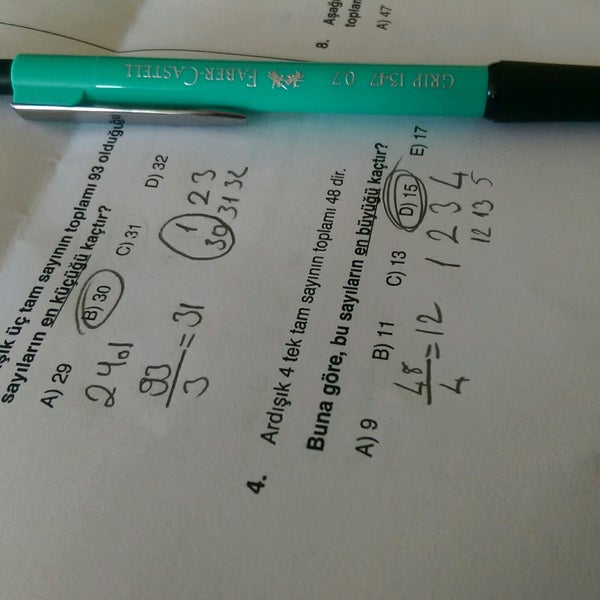 şık üç tam sayının toplamı 93 olduğu
sayıların en küçüğü kaçtır?
A) 29 B) 30 C) 31 D) 32
2 yol
93
3
= 31
1 2 3
30 31 32
4. Ardışık 4 tek tam sayının toplamı 48 dir.
Buna göre, bu sayıların en büyüğü kaçtır?
A) 9 B) 11 C) 13 D) 15 E) 17
48
4
= 12
1 2 3 4
12 13 5
8. Aşağı
toplan
A) 47
GRIP 1347 0.7 FABER-CASTELL